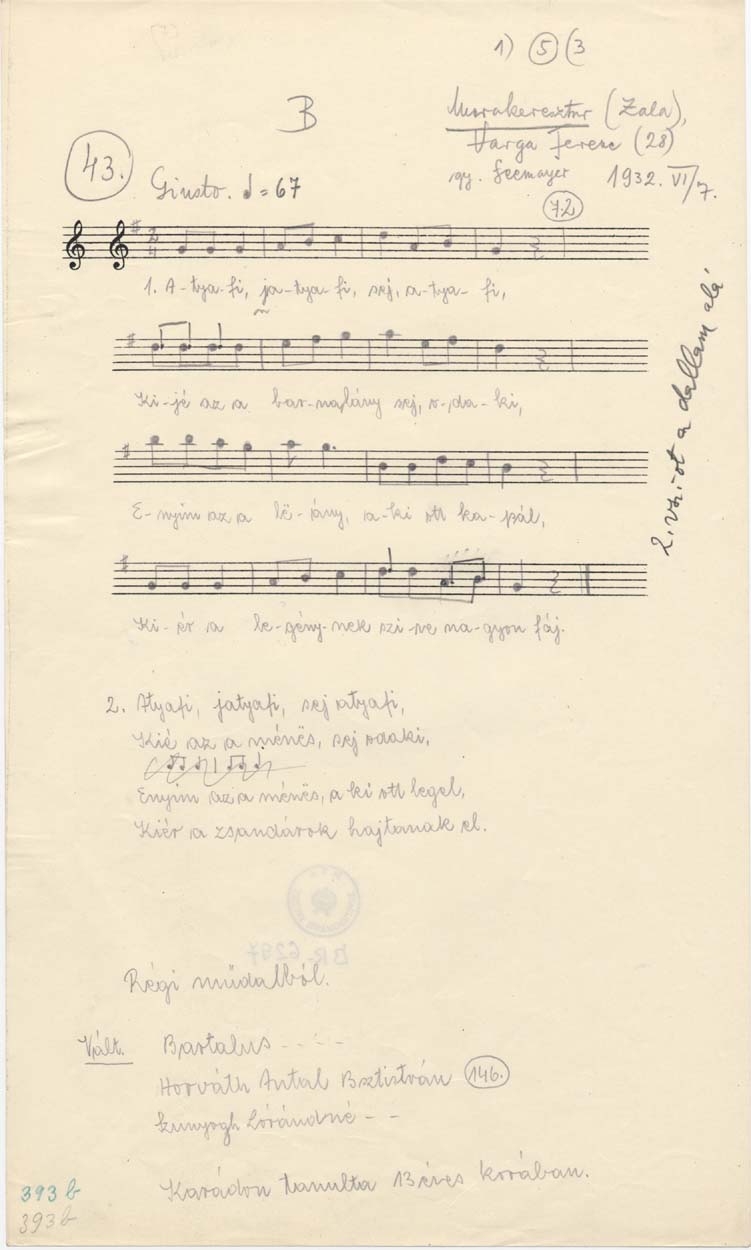 1) 5 (3
B
Murakeresztur (Zala),
43.
Varga Ferenc (28)
Giusto. ♩ = 67
gy. Seemayer 1932. VI/7.
72
2
4
1. A-tya-fi, ja-tya-fi, sej, a-tya-fi,
Ki-jé az a bar-na lány sej, o-da-ki,
E-nyim az a lë-ány, a-ki ott ka-pál,
Ki-ér a le-gény-nek szi-ve na-gyon fáj.
2. vsz-ot a dallam alá
2. Atyafi, jatyafi, sej atyafi,
Kié az a ménës, sej odaki,
Enyim az a ménës, a ki ott legel,
Kiér a zsandárok hajtanak el.
BR_6297
Régi műdalból.
Vált. Bartalus - - - -
Horváth Antal Bsztistván 146.
Szunyogh Lórándné - -
Karádon tanulta 13 éves korában.
393 b
393 b